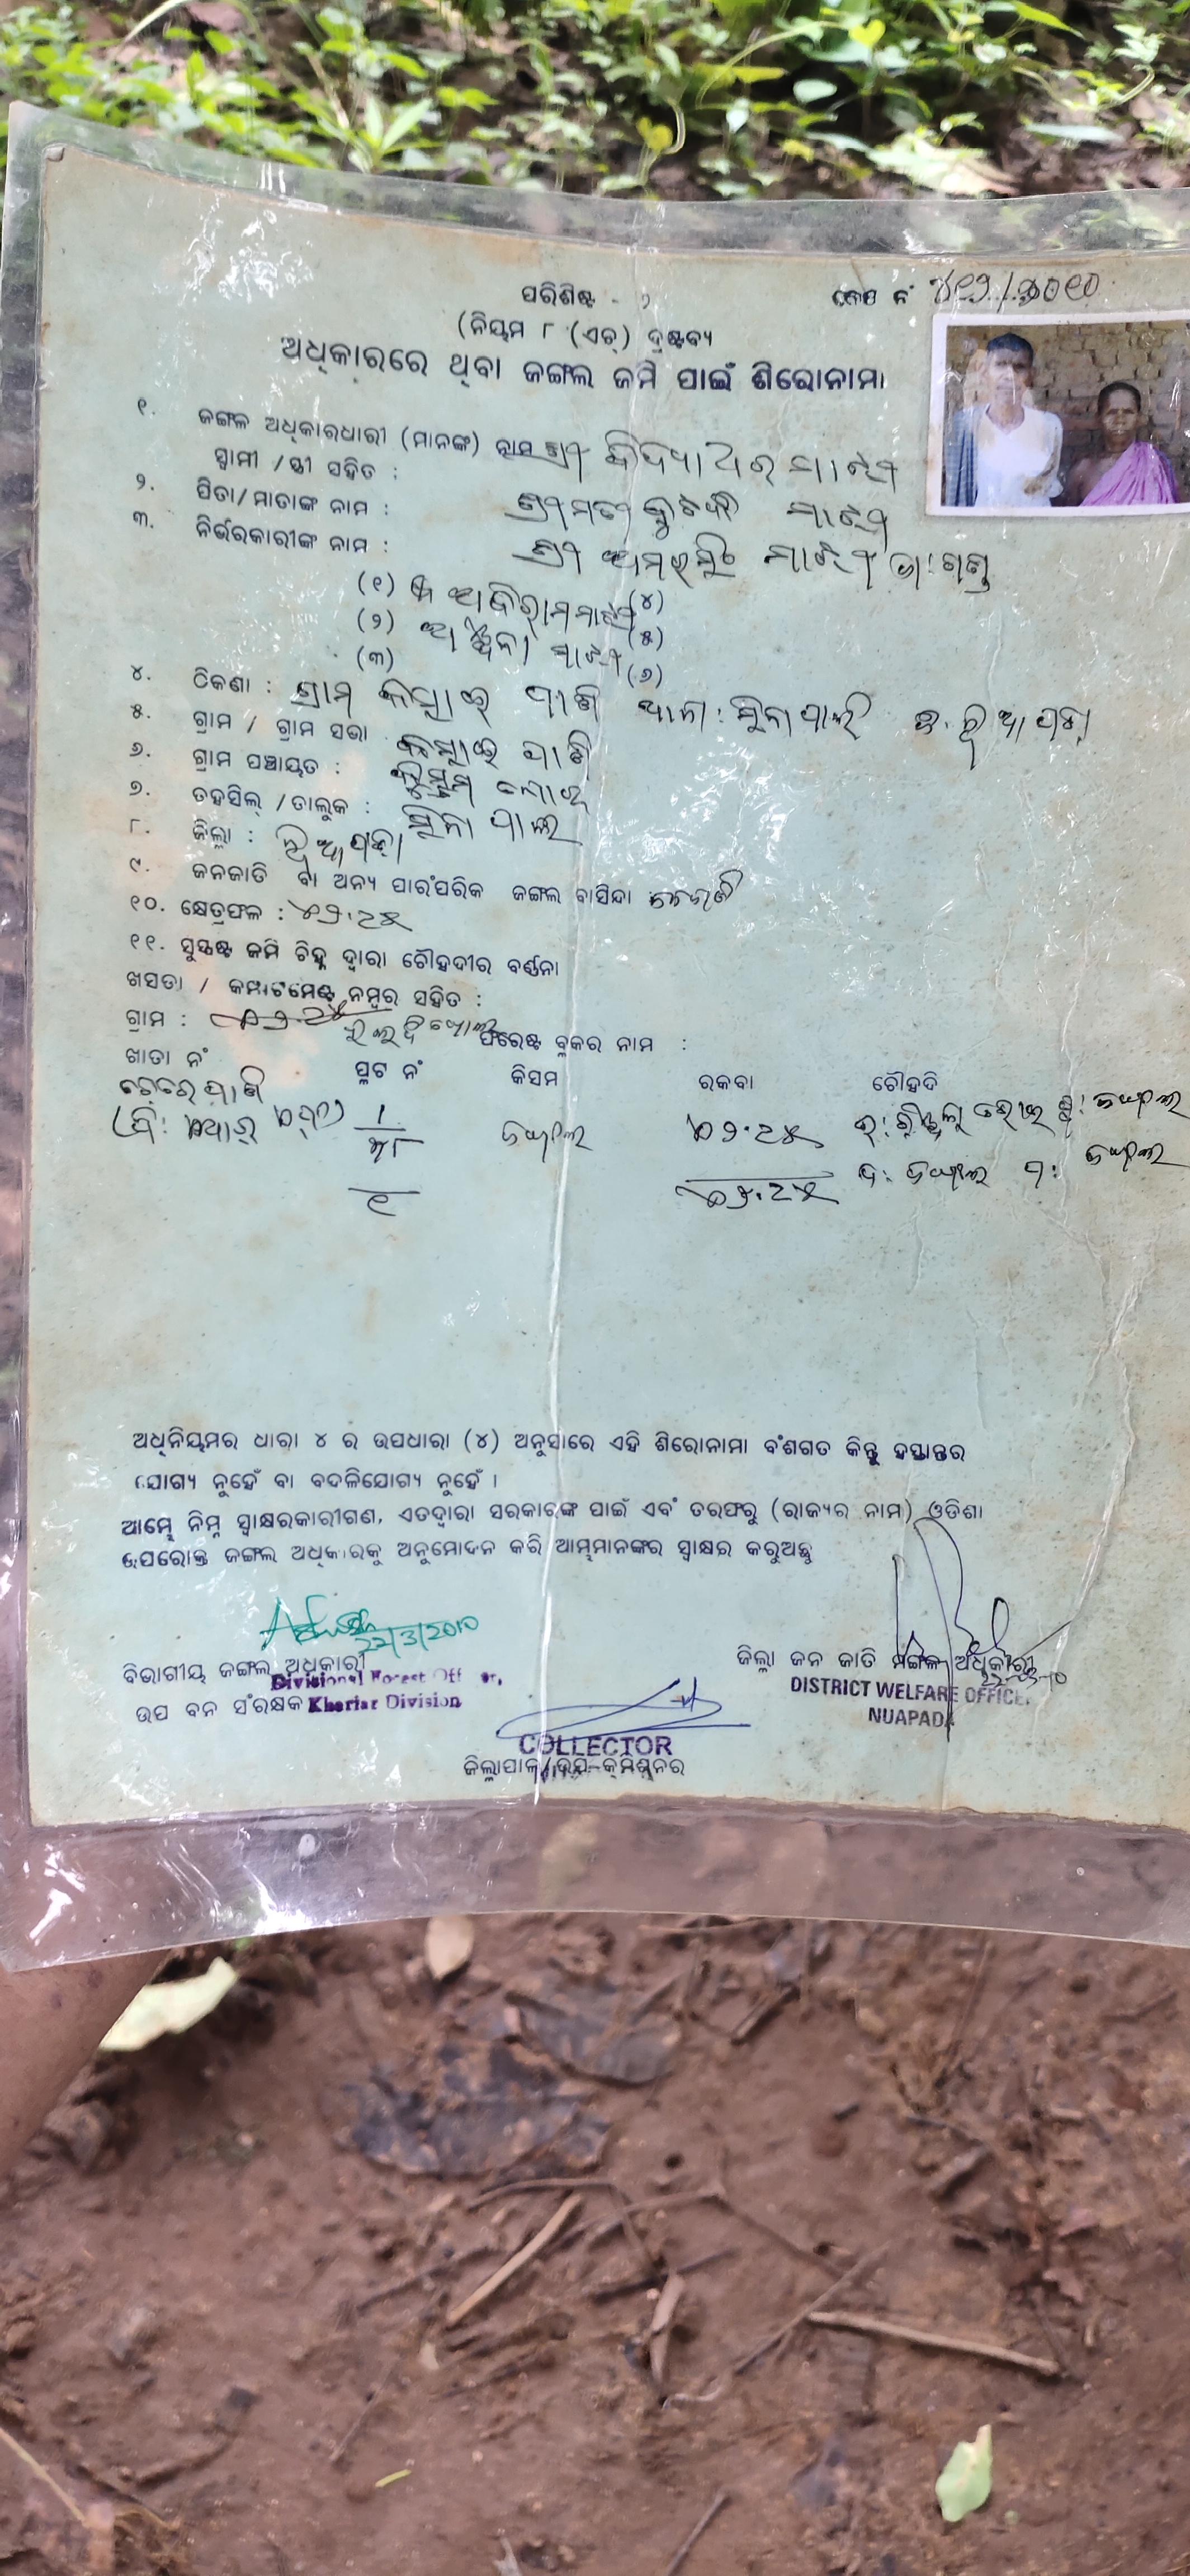 ପରିଶିଷ୍ଟ - ୨
କେସ ନଂ ୪୧୨/୨୦୧୦
(ନିୟମ ୮ (ଏଚ୍) ଦ୍ରଷ୍ଟବ୍ୟ
ଅଧିକାରରେ ଥିବା ଜଙ୍ଗଲ ଜମି ପାଇଁ ଶିରୋନାମା
୧. ଜଙ୍ଗଲ ଅଧିକାରଧାରୀ (ମାନଙ୍କ) ନାମ ଶ୍ରୀ ବିଦ୍ୟାଧର ମାଝୀ
ସ୍ୱାମୀ / ସ୍ତ୍ରୀ ସହିତ : ଶ୍ରୀମତୀ ମାଝୀ
୨. ପିତା/ମାତାଙ୍କ ନାମ : ଶ୍ରୀ ଅମରସିଂ ମାଝୀ
୩. ନିର୍ଭରକାରୀଙ୍କ ନାମ :
(୧) ଅଭିରାମ ମାଝୀ (୪)
(୨) ମାଝୀ (୫)
(୩) (୬)
୪. ଠିକଣା : ଗ୍ରାମ ପାଣି ଥାନା : ସିନାପାଲି ଜି. ନୂଆପଡ଼ା
୫. ଗ୍ରାମ / ଗ୍ରାମ ସଭା ପାଣି
୬. ଗ୍ରାମ ପଞ୍ଚାୟତ :
୭. ତହସିଲ୍ /ତାଲୁକ : ସିନାପାଲି
୮. ଜିଲ୍ଲା : ନୂଆପଡ଼ା
୯. ଜନଜାତି ବା ଅନ୍ୟ ପାରଂପରିକ ଜଙ୍ଗଲ ବାସିନ୍ଦା
୧୦. କ୍ଷେତ୍ରଫଳ :
୧୧. ସୁସ୍ପଷ୍ଟ ଜମି ଚିହ୍ନ ଦ୍ୱାରା ଚୌହଦୀର ବର୍ଣ୍ଣନା
ଖସଡା / କମ୍ପାଟମେଣ୍ଟ ନମ୍ବର ସହିତ :
ଗ୍ରାମ : ଫରେଷ୍ଟ ବ୍ଳକର ନାମ :
ଖାତା ନଂ ପ୍ଳଟ ନଂ କିସମ ରକବା ଚୌହଦି
ଜଙ୍ଗଲ ଜଙ୍ଗଲ
ଦ: ଜଙ୍ଗଲ ପ: ଜଙ୍ଗଲ
ଅଧିନିୟମର ଧାରା ୪ ର ଉପଧାରା (୪) ଅନୁସାରେ ଏହି ଶିରୋନାମା ବଂଶଗତ କିନ୍ତୁ ହସ୍ତାନ୍ତର
ଯୋଗ୍ୟ ନୁହେଁ ବା ବଦଳିଯୋଗ୍ୟ ନୁହେଁ ।
ଆମ୍ଭେ ନିମ୍ନ ସ୍ୱାକ୍ଷରକାରୀଗଣ, ଏତଦ୍ୱାରା ସରକାରଙ୍କ ପାଇଁ ଏବଂ ତରଫରୁ (ରାଜ୍ୟର ନାମ) ଓଡିଶା
ଉପରୋକ୍ତ ଜଙ୍ଗଲ ଅଧିକାରକୁ ଅନୁମୋଦନ କରି ଆମ୍ଭମାନଙ୍କର ସ୍ୱାକ୍ଷର କରୁଅଛୁ
22/3/2010
ବିଭାଗୀୟ ଜଙ୍ଗଲ ଅଧିକାରୀ
Divisional Forest Officer,
ଉପ ବନ ସଂରକ୍ଷକ Khariar Division
ଜିଲ୍ଲା ଜନ ଜାତି ମଙ୍ଗଳ ଅଧିକାରୀ
DISTRICT WELFARE OFFICER
NUAPADA
COLLECTOR
ଜିଲ୍ଲାପାଳ/ଉପ-କମିଶ୍ନର